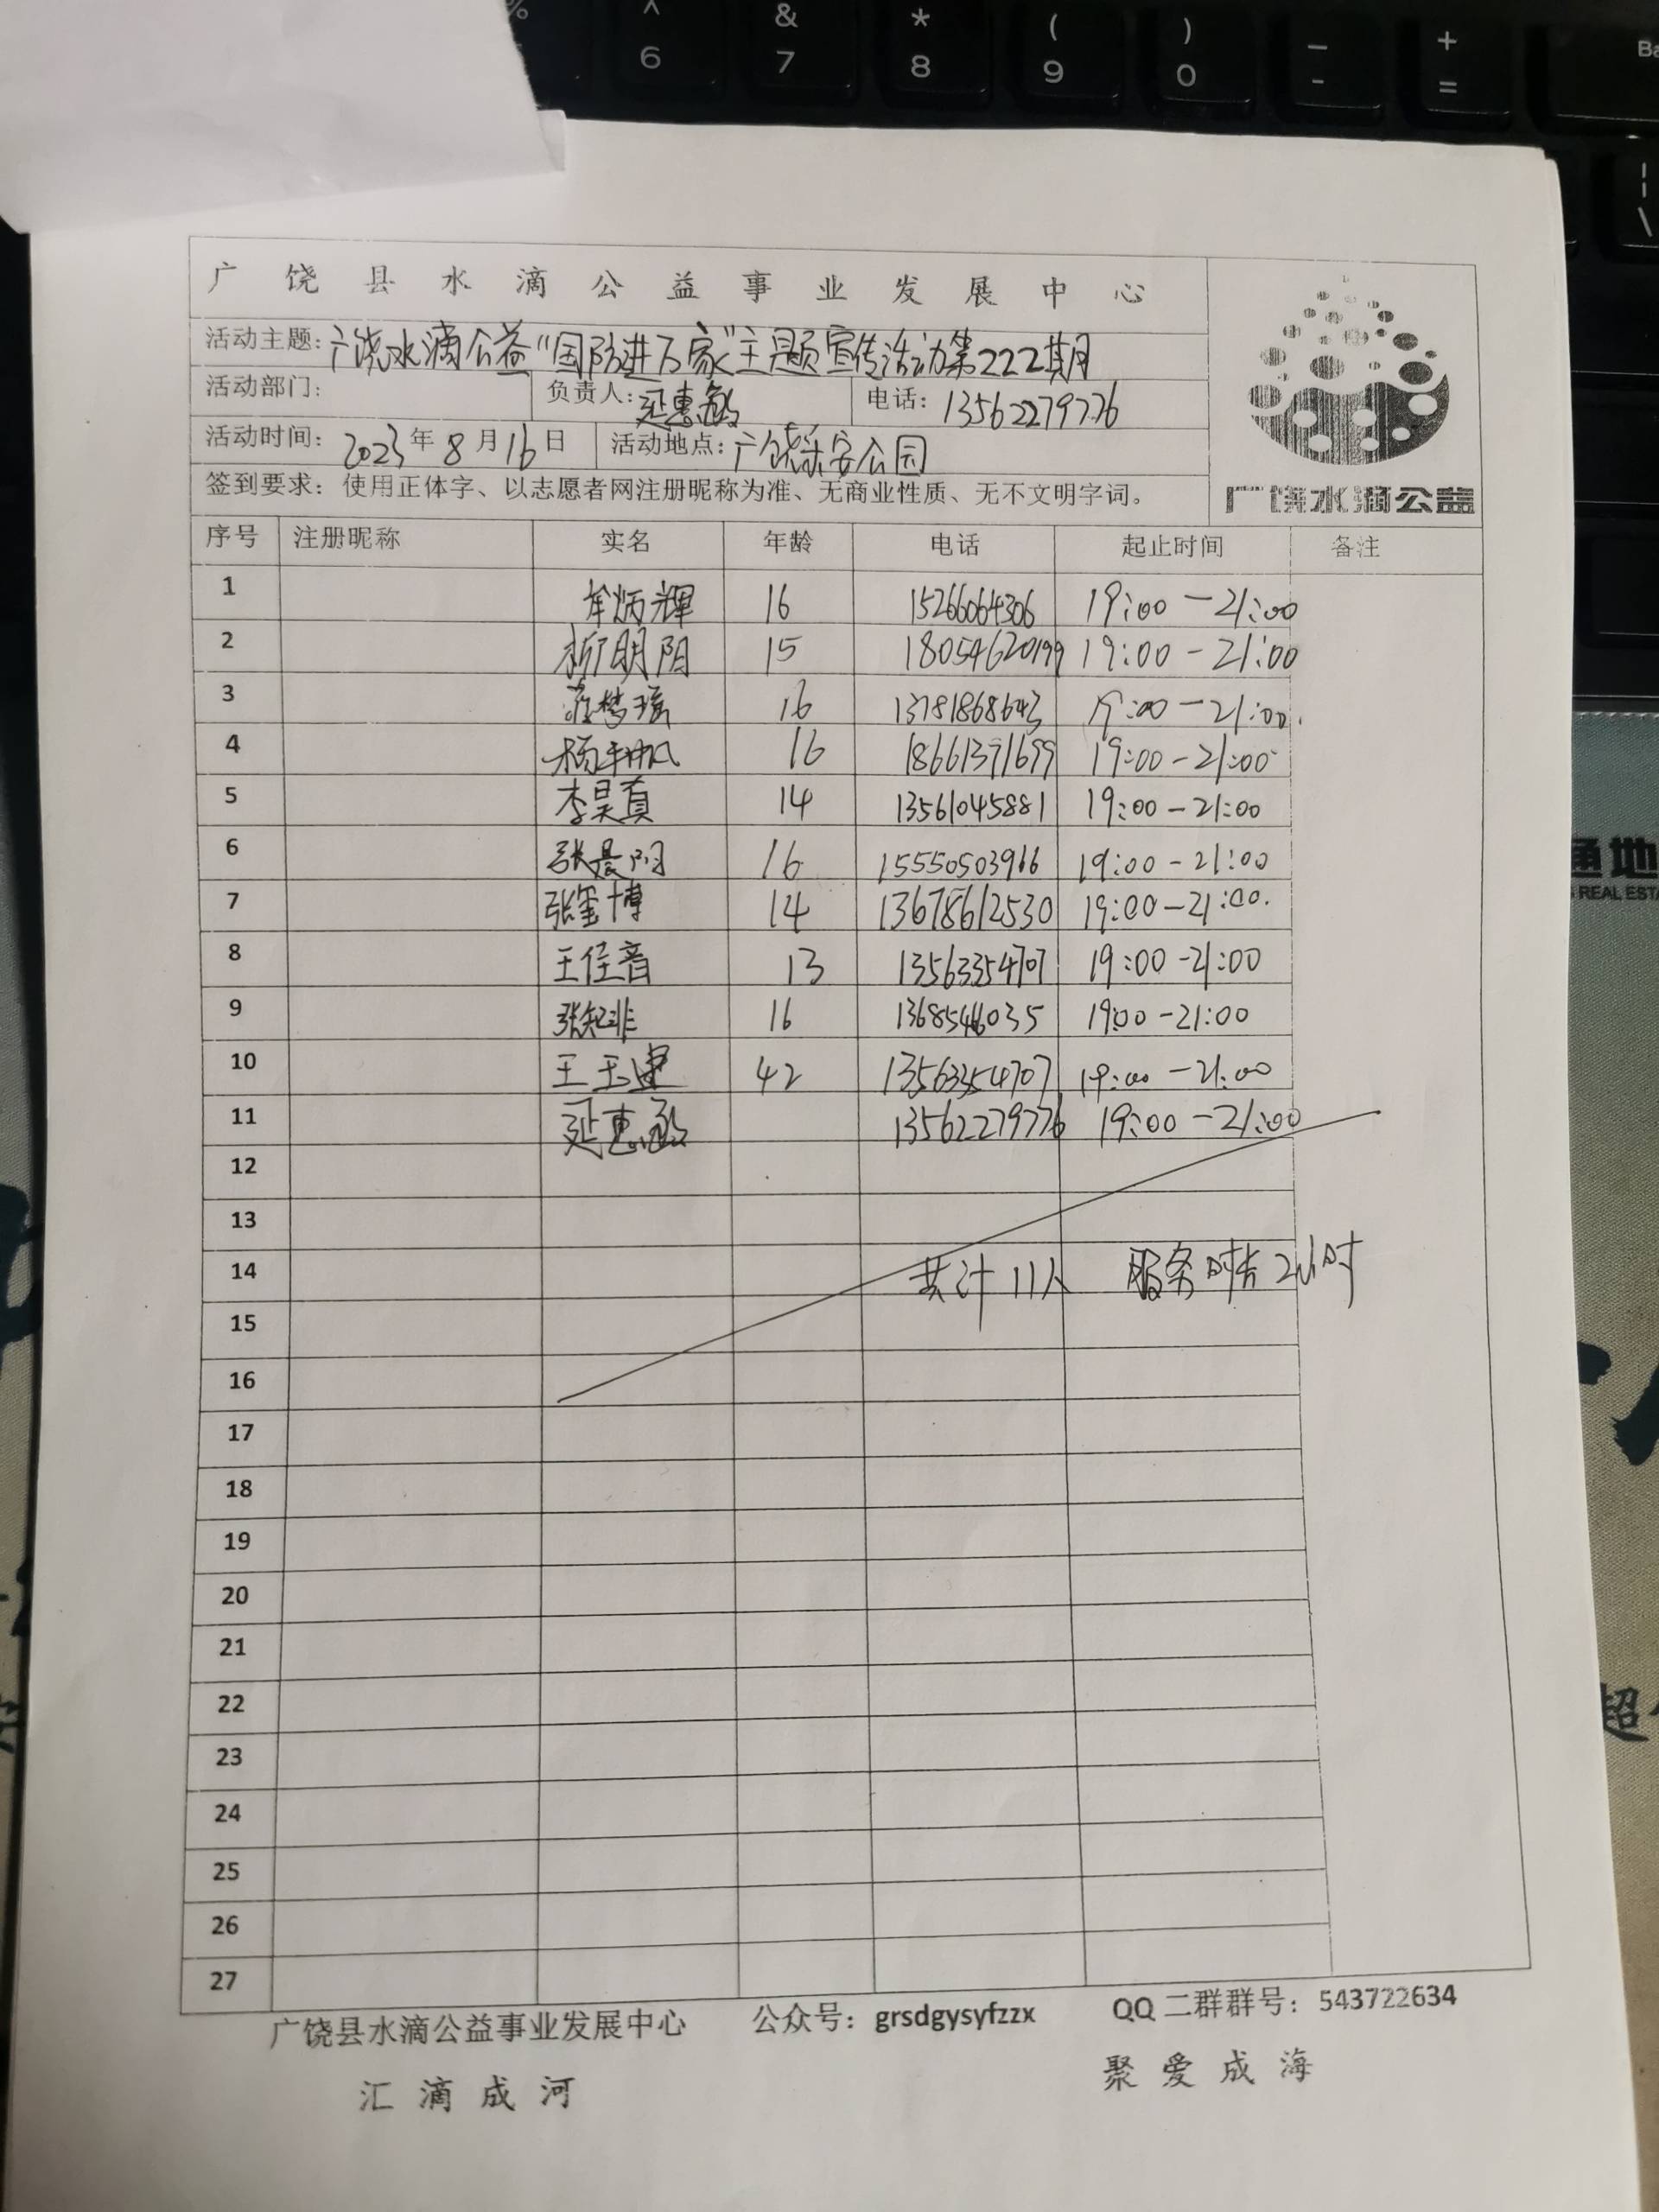 ^ & * ( ) _ +
6 7 8 9 0 - =
广饶县水滴公益事业发展中心
活动主题:广饶水滴公益“国防进万家”主题宣传活动第222期
活动部门: 负责人:延惠敏 电话:13562279776
活动时间:2023年8月16日 活动地点:广饶乐安公园
签到要求:使用正体字、以志愿者网注册昵称为准、无商业性质、无不文明字词。
广饶水滴公益
序号 注册昵称 实名 年龄 电话 起止时间 备注
1 牟炳辉 16 15266064306 19:00-21:00
2 明阳 15 18054620199 19:00-21:00
3 16 13781868643 19:00-21:00.
4 杨 帆 16 18661371699 19:00-21:00
5 李昊真 14 13561045881 19:00-21:00
6 张晨阳 16 15550503966 19:00-21:00
7 张玺博 14 13678612530 19:00-21:00.
8 王佳音 13 13563354707 19:00-21:00
9 张知非 16 19:00-21:00
10 王玉建 42 13563354707 19:00-21:00
11 延惠敏 13562279776 19:00-21:00
12
13
14 共计11人 服务时长2小时
15
16
17
18
19
20
21
22
23
24
25
26
27
广饶县水滴公益事业发展中心 公众号:grsdgysyfzzx QQ二群群号:543722634
汇滴成河 聚爱成海
通地
REAL ESTA
超